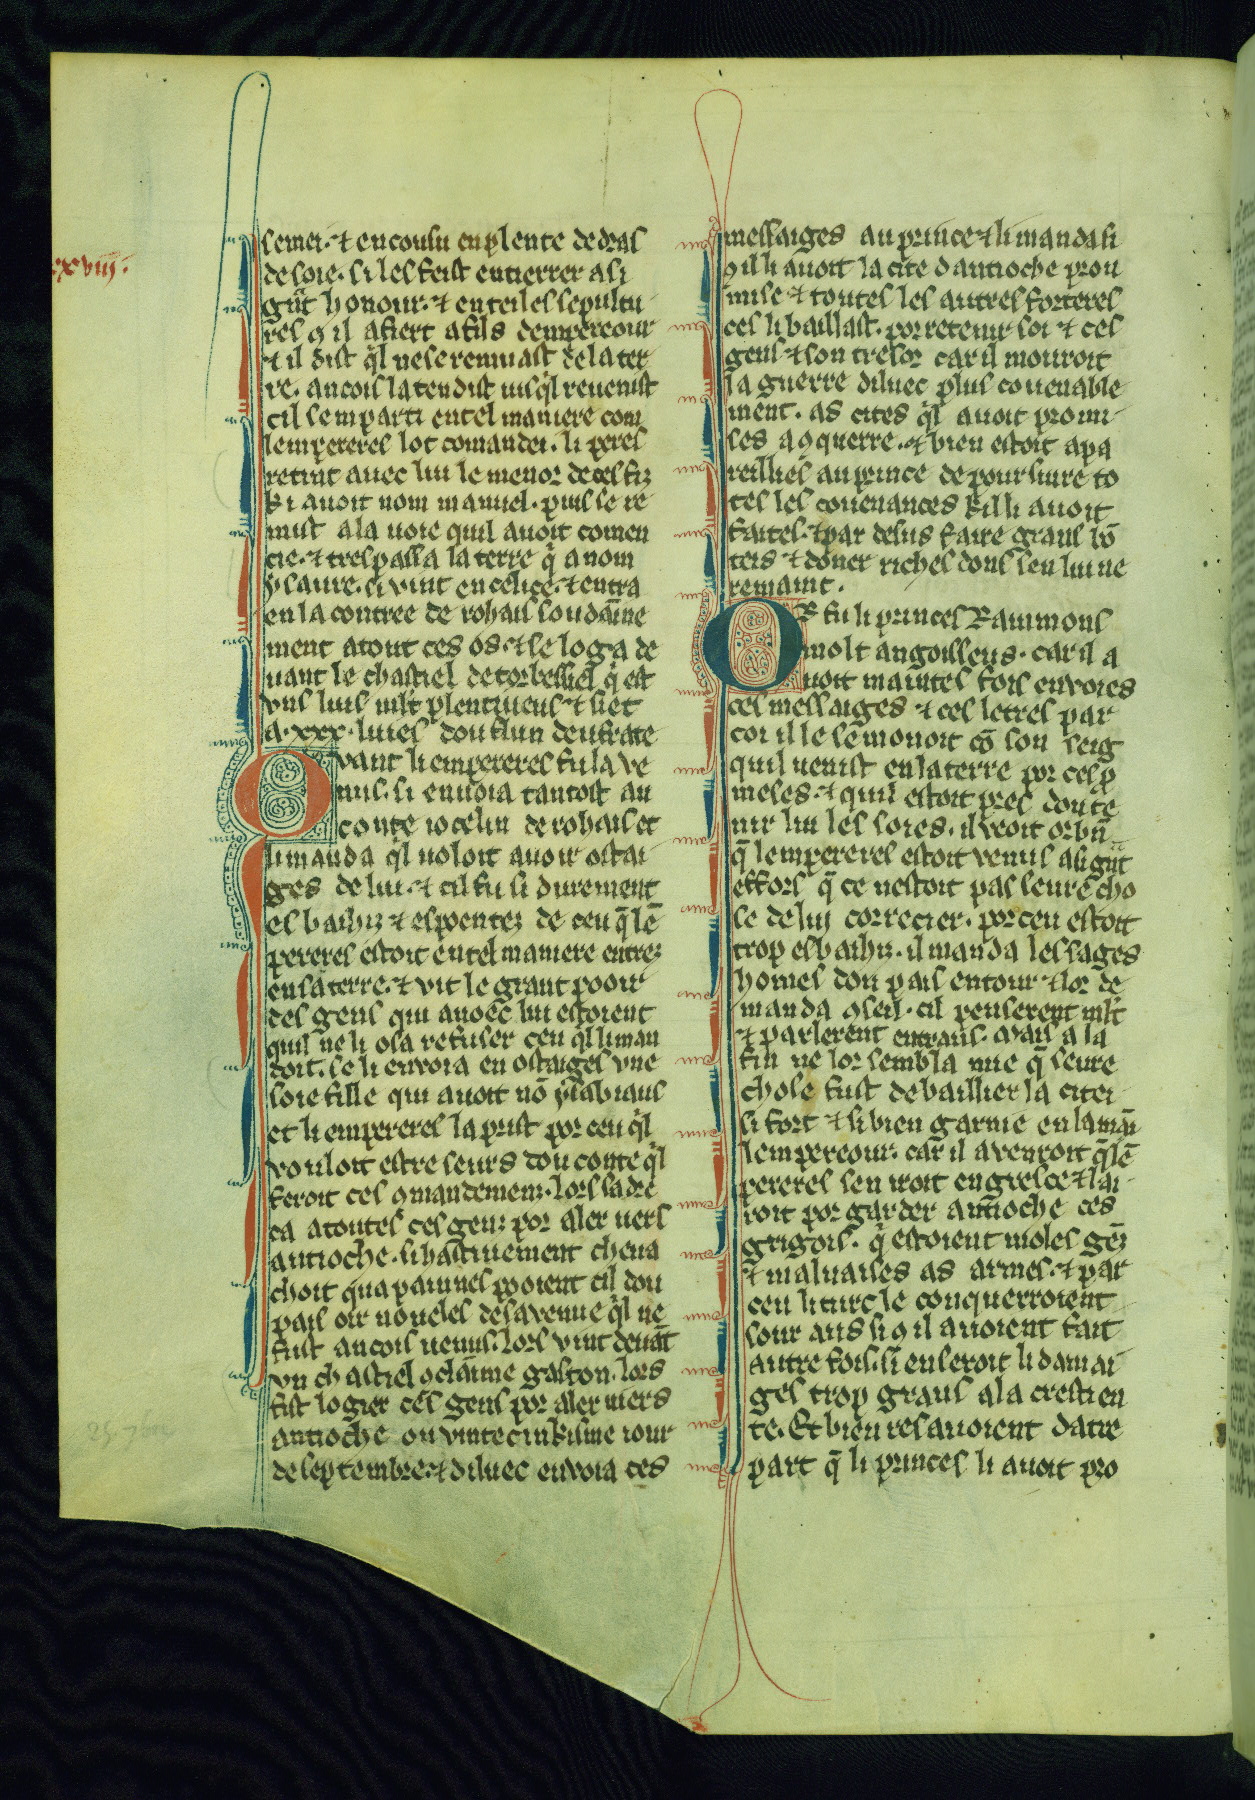 xxviij.
semei. ⁊ encousu en plente de dras
de soie. si les feist entierrer a si
gͣnt honour. ⁊ en teiles sepultu-
res ꝯ il afiert a fils dempereour
⁊ il dist qͥl ne se remuast de la ter
re. ancois latendist iusqͥl reuenist
cil semparti en tel maniere com
lempereres lot comandei. li peres
retint auec lui le menor de ces fiz
ki auoit nom manuel. puis se re
mist a la uoie quil auoit comen
cie. ⁊ trespassa la terre qͥ a nom
ysaure. si vint en celice. ⁊ entra
en la contree de rohais soudaine
ment a tout ces os. ⁊ se loga de
uant le chastiel de torbessiel qͥ est
vns luis mlt plentiueus ⁊ siet
a .xxx. liues dou flun deufrate
Qvant li empereres fu la ve
nus. si enuoia tantost au
conte iocelin de rohais et
li manda qͥl uoloit auoir ostai-
ges de lui. ⁊ cil fu si durement
esbaihiz ⁊ espoentez de ceu q̄ lē
pereres estoit en tel maniere entrez
en sa terre. ⁊ vit le grant pooir
des gens qui auoec lui estoient
quil ne li osa refuser ceu qͥl li man
doit. se li envoia en ostaiges vne
soie fille qui auoit nō ysabiaus
et li empereres la prist por ceu qͥl
vouloit estre seurs dou conte qͥl
feroit ces ꝯmandemenz. lors sadre
ca a toutes ces genz por aler uers
antioche. si hastiuement cheua
choit qua painnes pooient cil dou
pais oir noueles de sa venue qͥl ne
fust ancois uenus. lors vint deuāt
vn chastiel oclaime gaston. lors
fist logier ces gens por aler uiers
antioche ou vintecinkisme iour
de septembre. ⁊ diluec envoia ces
messaiges au prince ⁊ li manda si
ꝯ il li auoit la cite dantioche prou
mise ⁊ toutes les autres forteres
ces li baillast. por retenir soi ⁊ ces
gens ⁊ son tresor car il mouroit
la guerre diluec plus couenable
ment. as cites qͥl auoit promi-
ses a ꝯquerre. ⁊ bien estoit apa
reilliés au prince de poursiure to
tes les couenances kil li auoit
faites. ⁊ par desus faire grans bō
teis ⁊ doner riches dons sen lui ne
remaint.
OR fu li princes Raimmons
molt angoisseus. car il a
uoit maintes fois envoies
ces messaiges ⁊ ces letres par
coi il le semonoit cō son seig
quil uenist en la terre por ces ꝓ
meses. ⁊ quil estoit pres dou te
nir lui les soies. il veoit or bn̄
q̄ lempereres estoit venus a si gͣnt
effors q̄ ce nestoit pas seure cho
se de lui correcier. por ceu estoit
trop esbaihiz. il manda les sages
homes dou pais entour ⁊ lor de
manda ꝯseil. cil penserent mlt
⁊ parlerent entraus. mais a la
fin ne lor sembla mie q̄ seure
chose fust de baillier la citei
si fort ⁊ si bien garnie en la mai
lempereour. car il avenroit q̄ lē
pereres sen iroit en gresce ⁊ lai-
roit por garder antioche ces
grigois. qͥ estoient moles gēz
⁊ malvaises as armes. ⁊ par
ceu li turc le conquerroient
sour aus si ꝯ il auoient fait
autre fois. si en seroit li damai
ges trop grans a la crestien
te. Et bien resavoient datre
part q̄ li princes li auoit pro